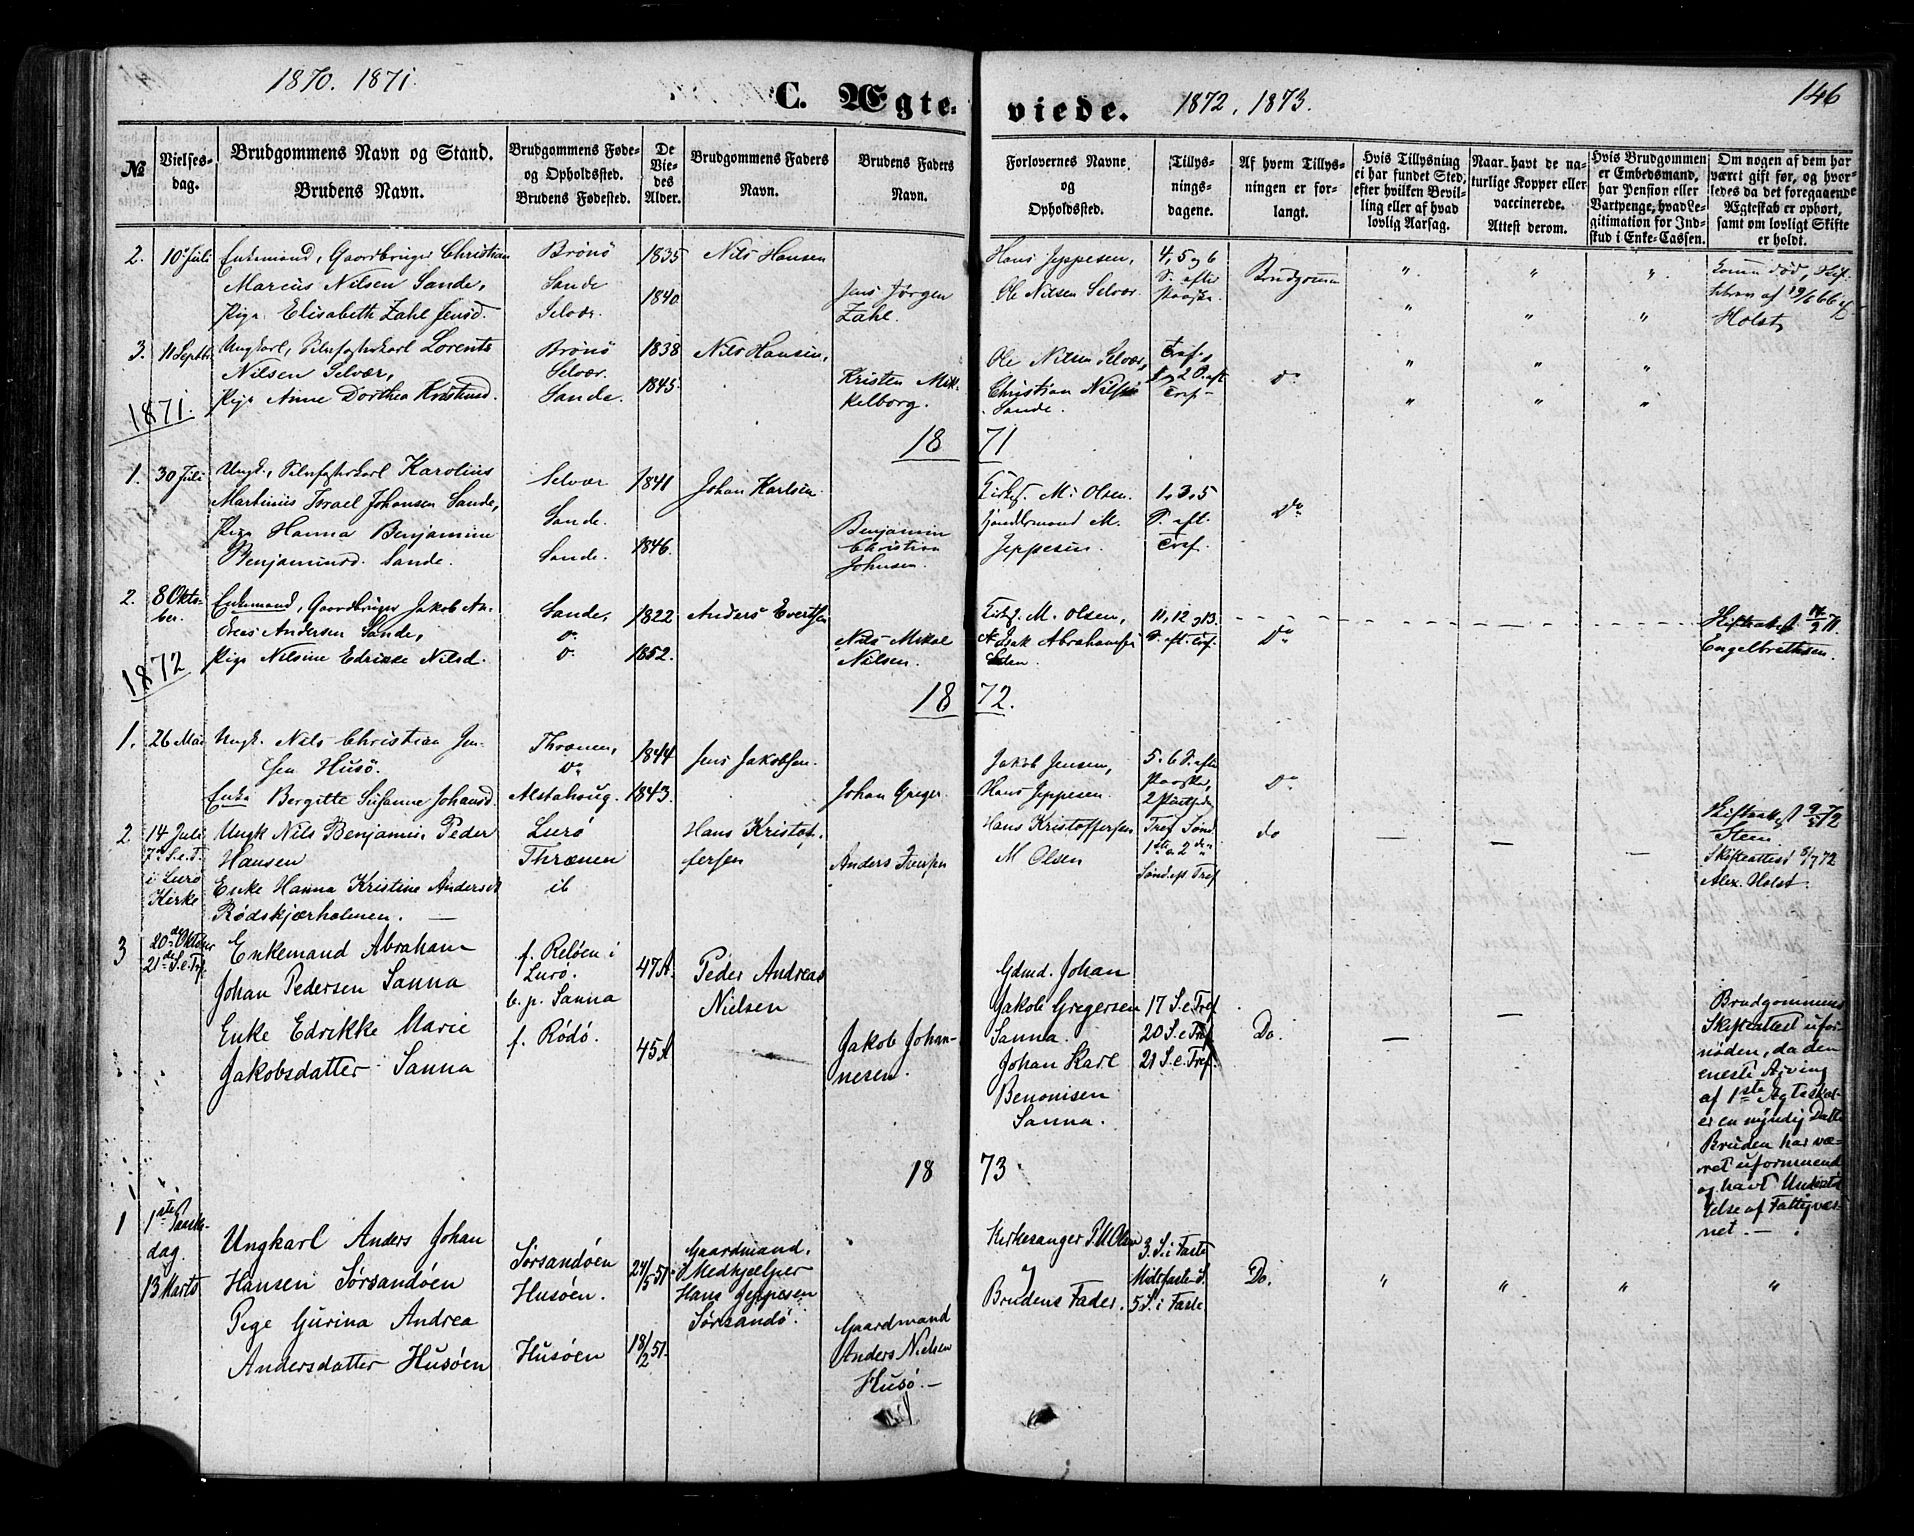 1870. 1871.
C. Ægte-
viede.
1872, 1873.
146
№
Vielses-
dag.
Brudgommens Navn og Stand.
Brudens Navn.
Brudgommens Føde-
og Opholdssted.
Brudens Fødested.
De
Vie-
des
Alder.
Brudgommens Faders
Navn.
Brudens Faders
Navn.
Forlovernes Navne
og
Opholdssted.
Tillys-
nings-
dagene.
Af hvem Tillys-
ningen er for-
langt.
Hvis Tillysning
ei har fundet Sted,
efter hvilken Bevil-
ling eller af hvad
lovlig Aarsag.
Naar havt de na-
turlige Kopper eller
vaccinerede.
Attest derom.
Hvis Brudgommen
er Embedsmand,
har Pension eller
Vartpenge, hvad Le-
gitimation for Ind-
skud i Enke-Cassen.
Om nogen af dem har
været gift før, og hvor-
ledes da det foregaaende
Ægteskab er ophørt,
samt om lovligt Skifte
er holdt.
2. 10 Juli
Enkemand, Gaardbruger Christian
Marcus Nilsen Sande,
Pige Elisabeth Zahl Jensd.
Brønø
Sande
Selvær.
1835
1840.
Nils Hansen
Jens Jørgen
Zahl.
Hans Jeppesen,
Ole Nilsen Selvær.
4, 5 og 6
S. efter
Paaske.
Brudgommen
" " "
" " "
død,
af 19/6 66 af
Holst
3. 11 Septbr
Ungkarl, Lorents
Nilsen Selvær,
Pige Anne Dorthea Kristensd.
Brønø
Selvær.
Sande.
1838
1845.
Nils Hansen,
Kristen Mik-
kelborg.
Ole Nilsen Selvær,
Christian Nilsen
Sande.
Tref. s
1 og 2 S. eft
Tref-
do
" " "
" " "
1871.
18 71
1. 30 Juli
Ungk., Karolius
Martinus Israel Johansen Sande,
Pige Hanna Benjamine
Benjaminsd. Sande.
Selvær
Sande.
Sande.
1841
1846.
Johan Karlsen.
Benjamin
Christian
Johnsen.
Kirkes. M. Olsen.
Handelsmand M.
Jeppesen.
1, 3, 5
S. eft.
Tref.
Do
2. 8 Okto-
ber.
Enkemand, Gaardbruger Jakob An-
dreas Andersen Sande,
Pige Nilsine Edrikke Nilsd.
Sande,
do
do
1822
1852.
Anders Evertsen
Nils Mikal
Nilsen.
Kirkes. M. Olsen,
Isak Abrahamsen
11, 12 og 13.
S. eft. Tref.
Do
—
Skifteattest 14/9 71
Engelbrethsen.
1872
18 72.
1. 26 Mai
Ungk. Nils Christian Jen-
sen Husø.
Enke Bergitte Susanne Johansd.
Thrænen,
Do
Alstahoug.
1844
1843.
Jens Jakobsen.
Johan Greger
Jakob Jensen,
Hans Jeppesen.
5. 6 S. efter
Paaske,
2 Pintsedag
Do
Skifteattest 9/2 72
Steen
2
14 Juli
7de S. e. T.
i Lurø
Kirke
Ungk Nils Benjamin Peder
Hansen
Enke Hanna Kristine Andersd
Rødskjærholmen. —
Lurø
Thrænen
ib
Hans Kristof-
fersen
Anders Iversen
Hans Kristoffersen
M Olsen
Tref Sønd.
1ste & 2den
Sønd. eft Tref
do
— —
Skifteattest 5/7 72
Alex. Holst.
3
20de Oktober
21de S. e. Tref.
Enkemand Abraham
Johan Pedersen Sanna
Enke Edrikke Marie
Jakobsdatter Sanna
f. Reløen i
Lurø.
b. p. Sanna
f. Rødø.
47 A.
45 A
Peder Andreas
Nielsen
Jakob Johan-
nesen.
Gdmd. Johan
Jakob Gregersen
Sanna.
Johan Karl
Benonisen
Sanna.
17 S. e. Tref
20 S. e. Tref
21 S. e. Tref.
Do.
— —
Brudgommens
Skifteattest ufor-
nöden, da den
eneste Arving
af 1ste Ægteskab
er en myndig Datter
Bruden har væ-
ret uformuende
og havt Understöt-
telse af Fattigvæs-
net. —
18 73
1
1ste Paaske-
dag
13 Marts
Ungkarl Anders Johan
Hansen Sørsandøen
Pige Gurina Andrea
Andersdatter Husøen
Sørsandøen
Husøen.
Husøen
24/5 51.
18/2 51.
Gaardmand,
Medhjælper
Hans Jeppesen
Sørsandø.
Gaardmand
Anders Nielsen
Husø. —
Kirkesanger P. M Olsen
og
Brudens Fader.
3. S. i Faste
Midtfaste S.
5 S. i Faste.
Do.
" " " "